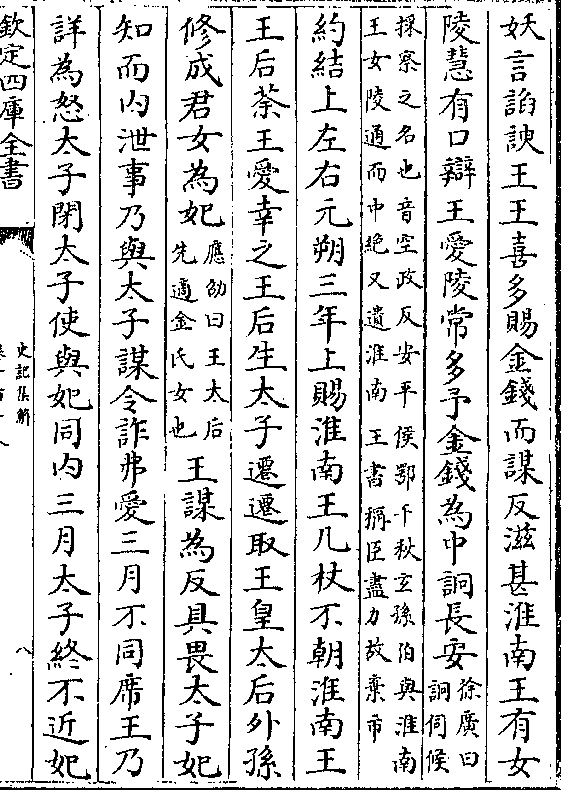 妖言諂諛王王喜多賜金錢而謀反滋甚淮南王有女
陵慧有口辯王愛陵常多予金錢為中詗長安徐廣曰詗伺候
採察之名也音空政反安平侯鄂千秋玄孫伯與淮南王女陵通而中絶又遺淮南王書稱臣盡力故棄市
約結上左右元朔三年上賜淮南王几杖不朝淮南王
王后荼王愛幸之王后生太子遷遷取王皇太后外孫
修成君女為妃應劭曰王太后先適金氏女也王謀為反具畏太子妃
知而内泄事乃與太子謀令詐弗愛三月不同席王乃
詳為怒太子閉太子使與妃同内三月太子終不近妃
欽定四庫全書
史記集解
八